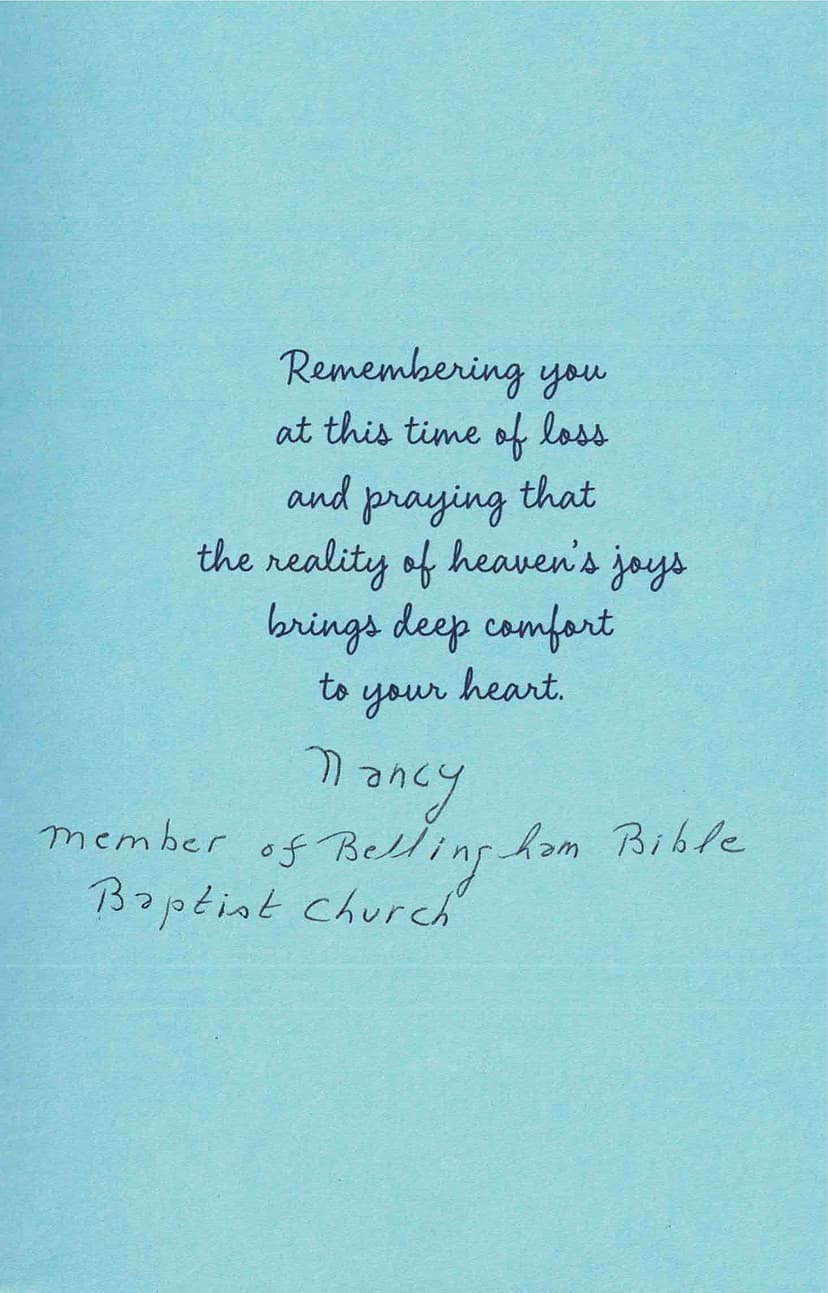 Remembering you
at this time of loss
and praying that
the reality of heaven's joys
brings deep comfort
to your heart.
Nancy
member of Bellingham Bible
Baptist Church